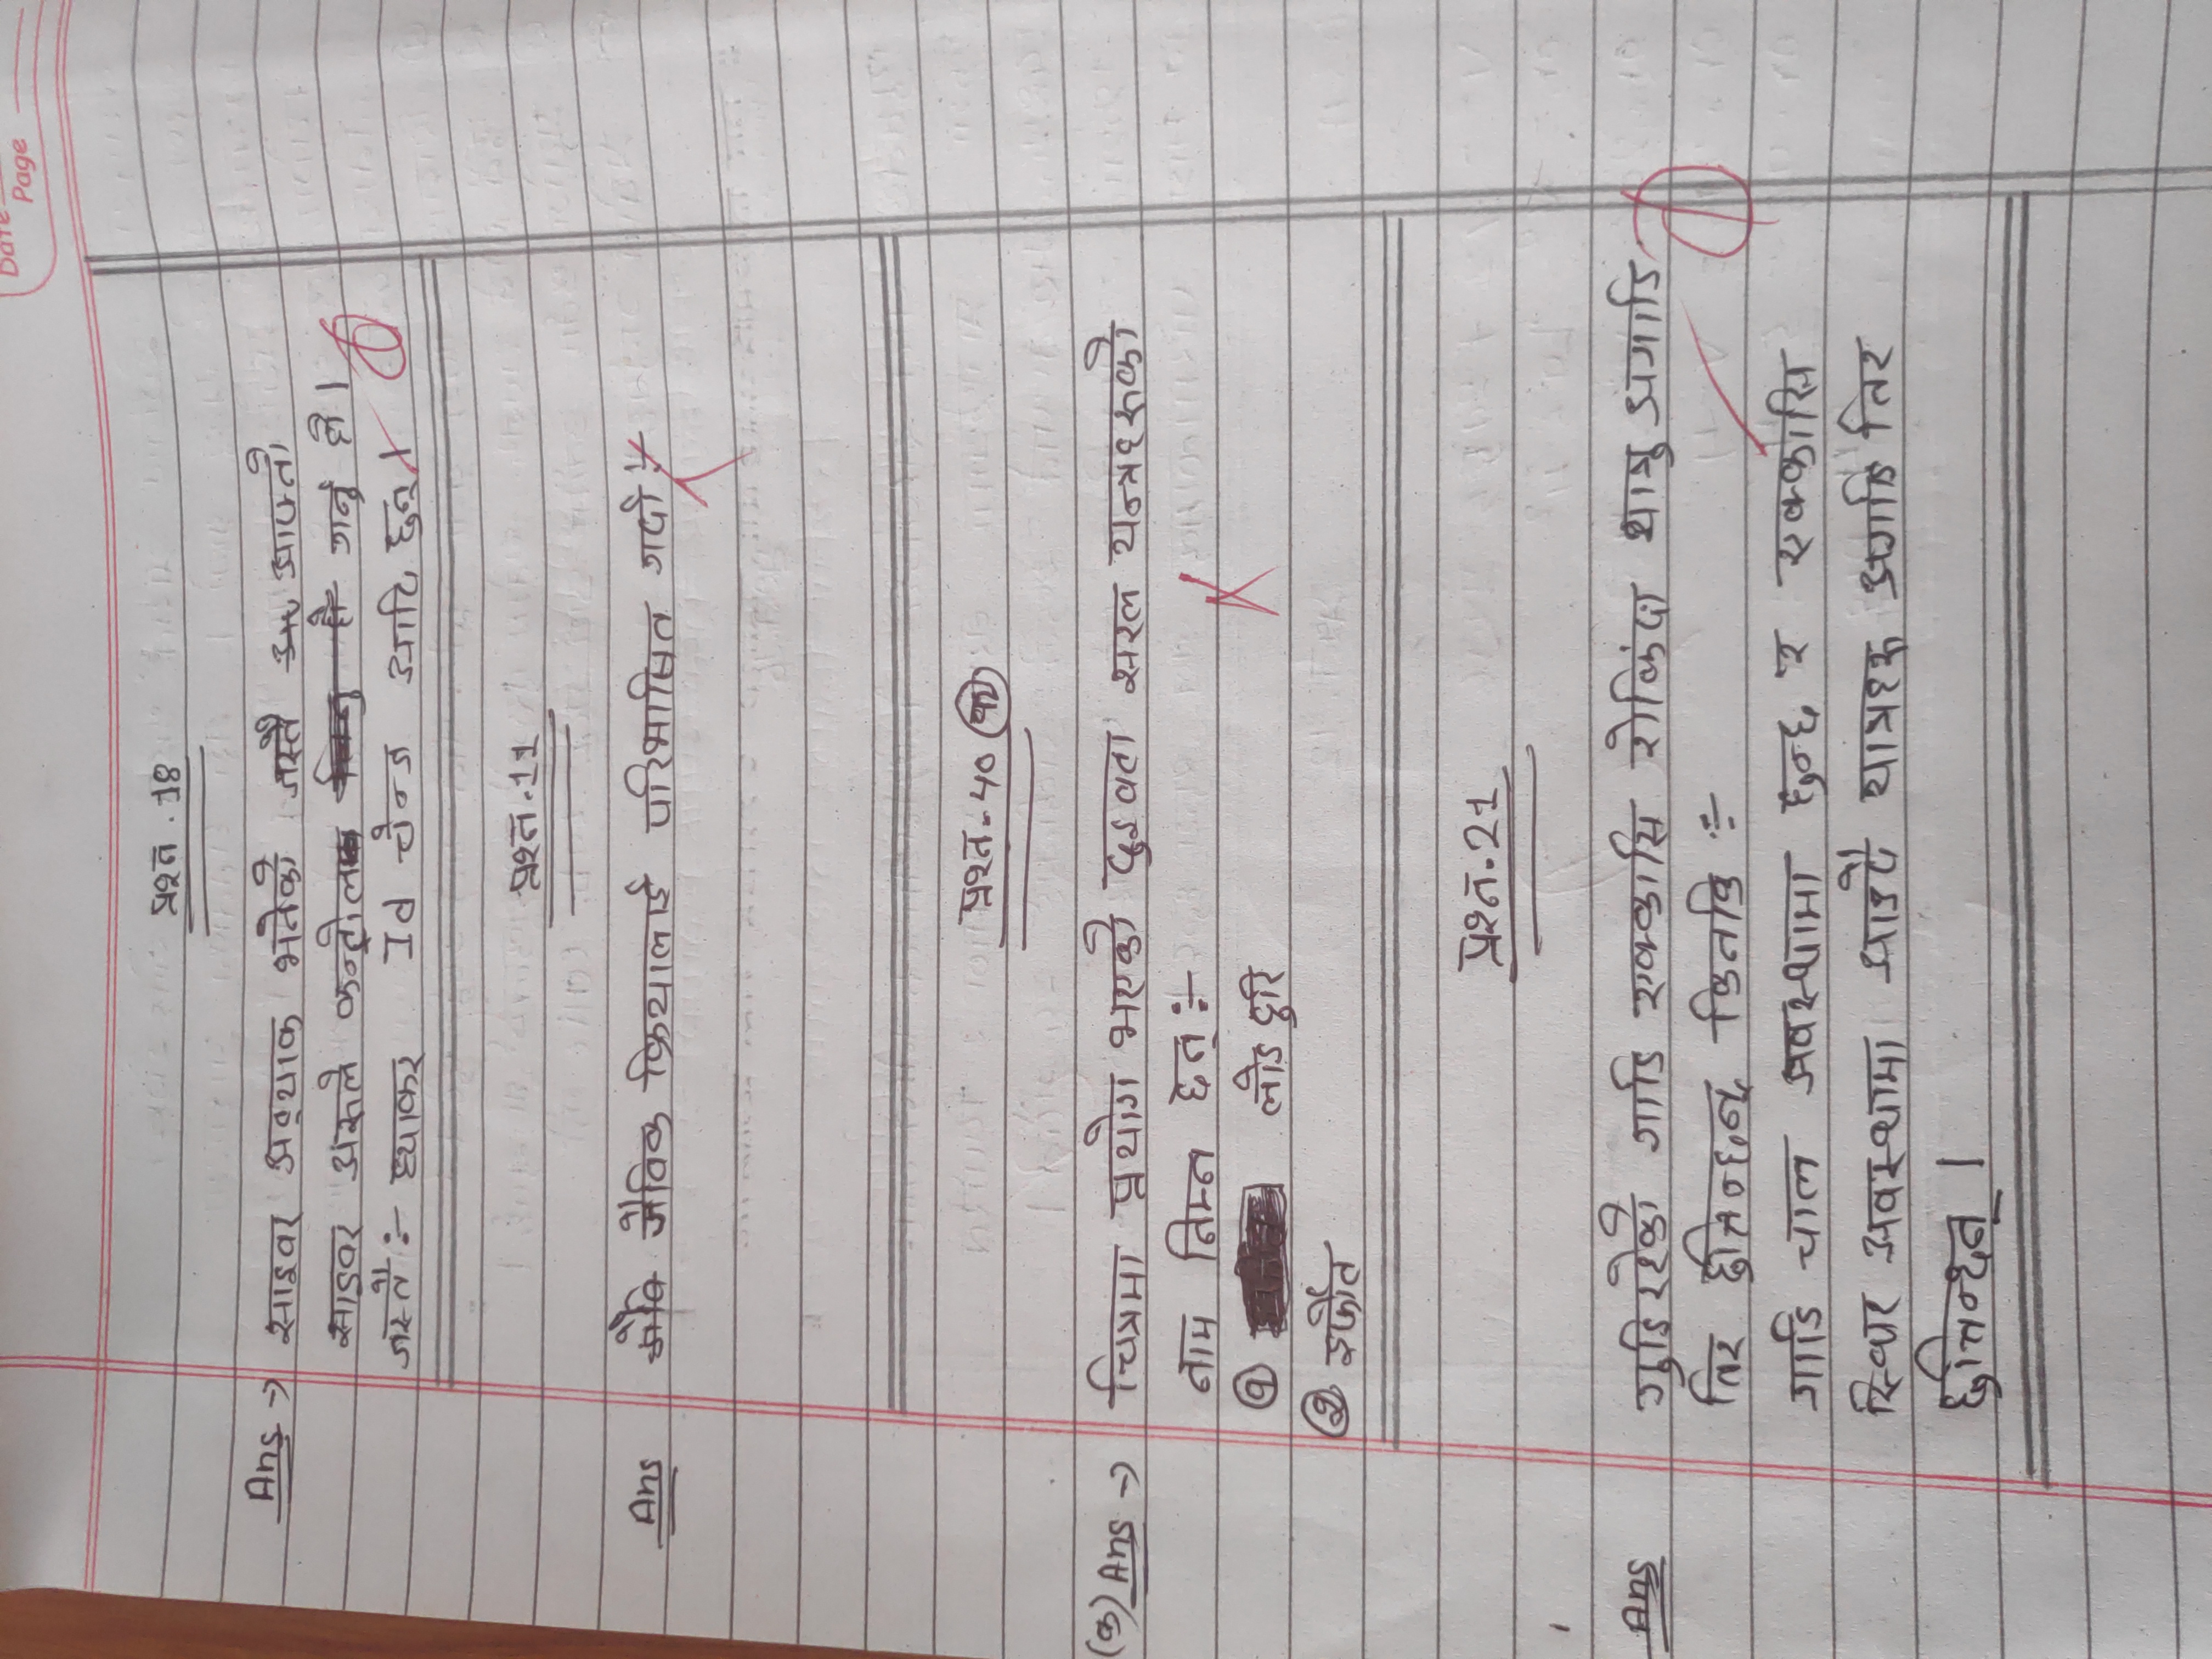 Date
Page
प्रश्न . 18
Ans → साइवर अट्याक भनेको जस्तै आफ्नो
साइवर अरुले कन्ट्रोल गर्नु हो ।
जस्तै :- ह्याकर Id चेन्ज आदि हुन् ।
प्रश्न . 11
Ans जैविक क्रियालाई परिभाषित गर्दा :-
प्रश्न - 40 (क)
(क) Ans → चित्रमा प्रयोग भएको दुइवटा सरल यन्त्रहरुको
नाम निम्न छन् :-
① लोड दुरि
② इफोत
प्रश्न . 21
Ans गुडिरहेको गाडि एक्कासि रोकिंदा यात्रु अगाडि
तिर हुत्तिन्छन् किनकि :-
गाडि चाल अवस्थामा हुन्छ र एक्कासि
स्थिर अवस्थामा आउदै यात्रहरु अगाडि तिर
हुत्तिन्छन् ।